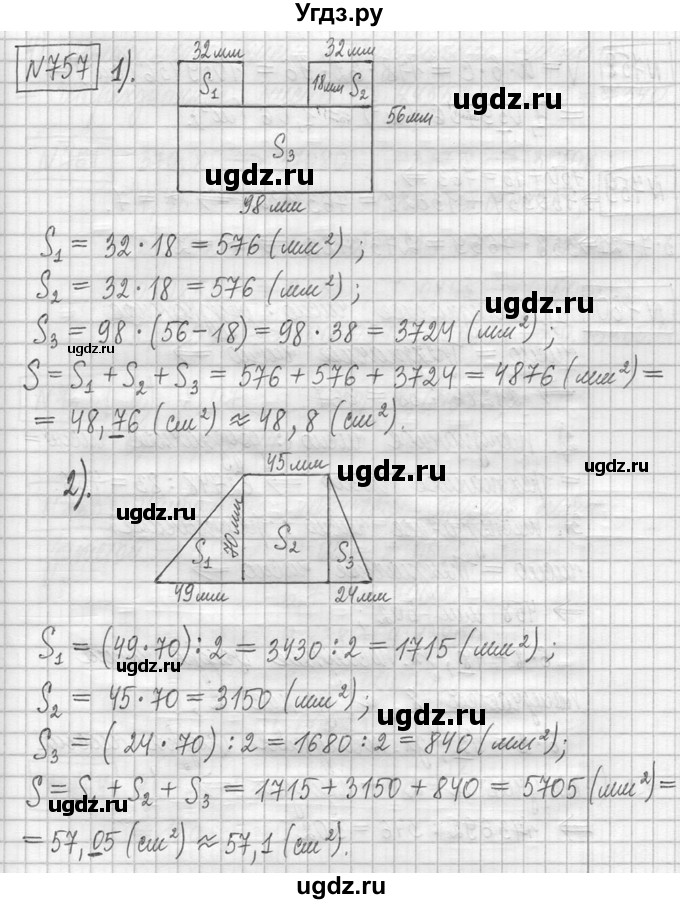 Угдз.ру
N757 1).
32мм 32мм
S₁ 18мм S₂
ugdz.ru
56мм
S₃
ugdz.ru
98 мм
S₁ = 32 · 18 = 576 (мм²) ;
S₂ = 32 · 18 = 576 (мм²);
ugdz.ru
S₃ = 98 · (56 – 18) = 98 · 38 = 3724 (мм²);
ugdz.ru
S = S₁ + S₂ + S₃ = 576 + 576 + 3724 = 4876 (мм²) =
= 48,76 (см²) ≈ 48,8 (см²).
ugdz.ru
2).
45мм
ugdz.ru
ugdz.ru
S₁ 70мм S₂ S₃
49мм 24мм
S₁ = (49 · 70) : 2 = 3430 : 2 = 1715 (мм²) ;
ugdz.ru
S₂ = 45 · 70 = 3150 (мм²);
ugdz.ru
S₃ = ( 24 · 70) : 2 = 1680 : 2 = 840 (мм²);
S = S₁ + S₂ + S₃ = 1715 + 3150 + 840 = 5705 (мм²) =
ugdz.ru
= 57,05 (см²) ≈ 57,1 (см²).
ugdz.ru
ugdz.ru